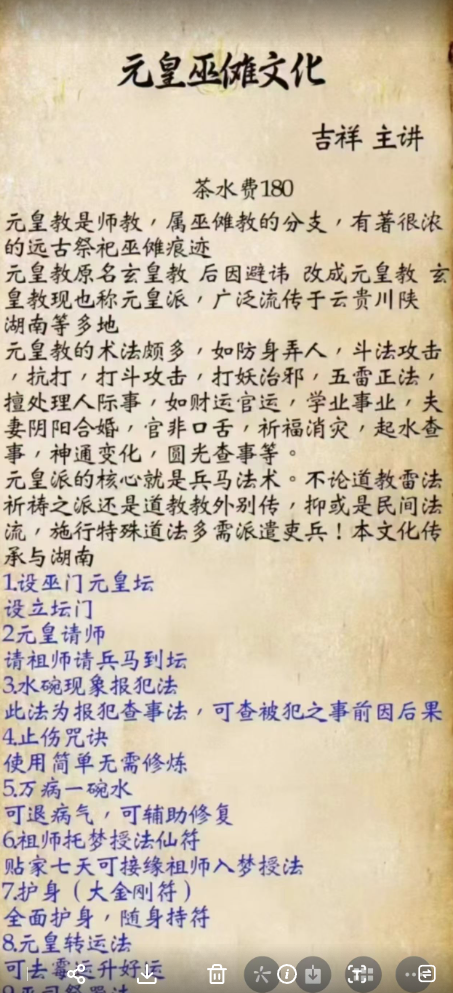 元皇巫傩文化
吉祥 主讲
茶水费180
元皇教是师教，属巫傩教的分支，有著很浓
的远古祭祀巫傩痕迹
元皇教原名玄皇教 后因避讳 改成元皇教 玄
皇教现也称元皇派，广泛流传于云贵川陕
湖南等多地
元皇教的术法颇多，如防身弄人，斗法攻击
，抗打，打斗攻击，打妖治邪，五雷正法，
擅处理人际事，如财运官运，学业事业，夫
妻阴阳合婚，官非口舌，祈福消灾，起水查
事，神通变化，圆光查事等。
元皇派的核心就是兵马法术。不论道教雷法
祈祷之派还是道教教外别传，抑或是民间法
流，施行特殊道法多需派遣吏兵！本文化传
承与湖南
1.设巫门元皇坛
设立坛门
2元皇请师
请祖师请兵马到坛
3.水碗现象报犯法
此法为报犯查事法，可查被犯之事前因后果
4.止伤咒诀
使用简单无需修炼
5.万病一碗水
可退病气，可辅助修复
6.祖师托梦授法仙符
贴家七天可接缘祖师入梦授法
7.护身（大金刚符）
全面护身，随身持符
8.元皇转运法
可去霉运升好运